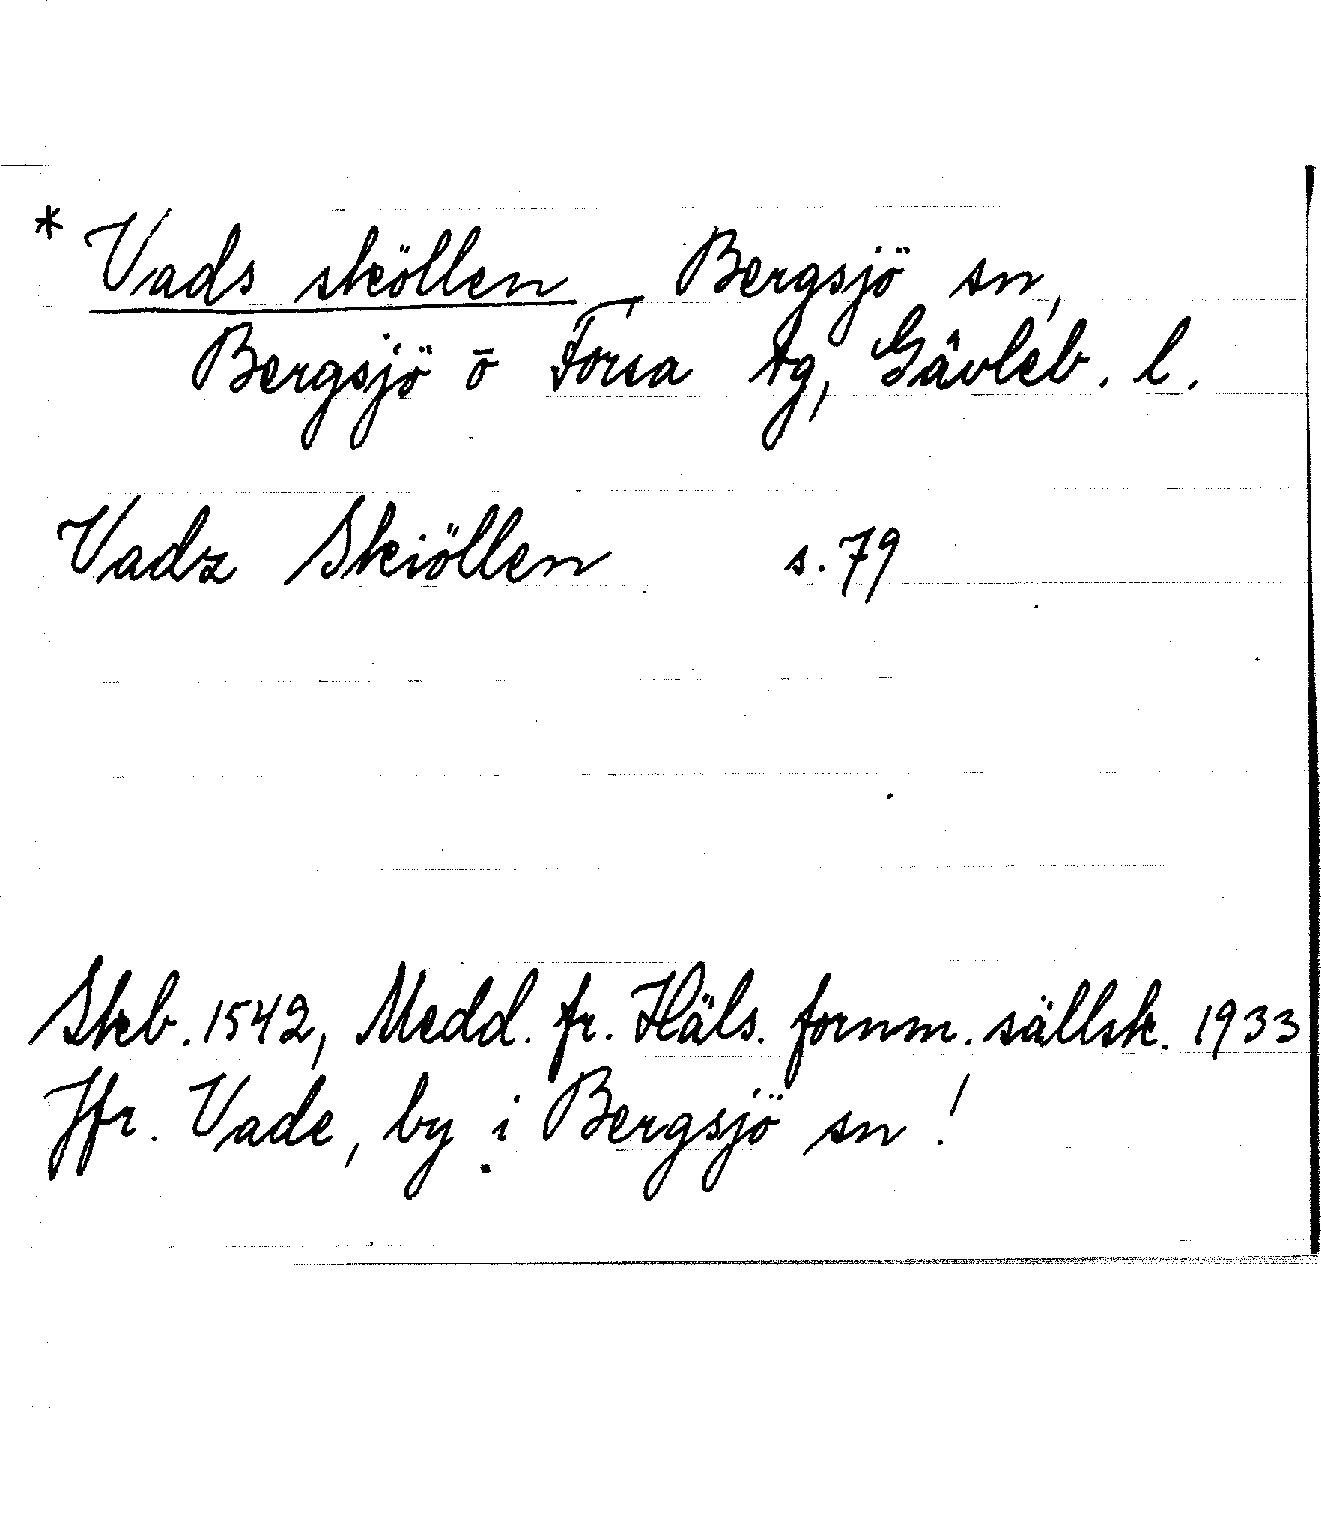 * Vads sköllen Bergsjö sn,
Bergsjö ō Forsa tg, Gävleb. l.
Vadz Skiöllen s. 79
Skb. 1542, Medd. fr. Häls. fornm. sällsk. 1933
Jfr. Vade, by i Bergsjö sn!